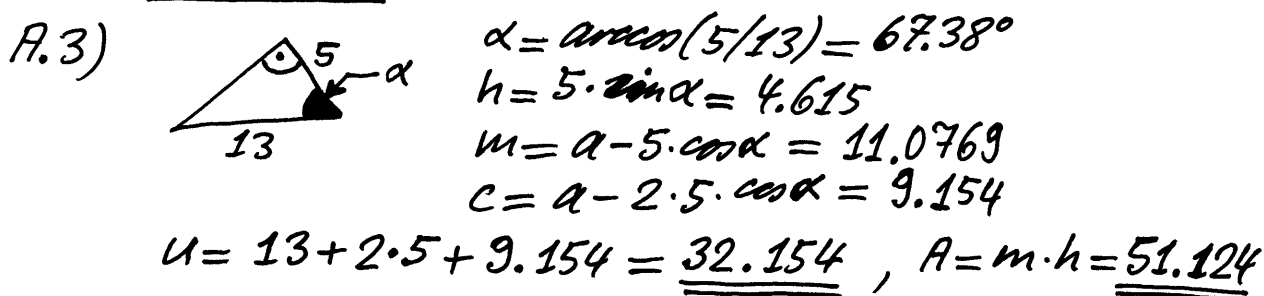 A.3) 5 α α = arccos(5/13) = 67.38°
13 h = 5·sinα = 4.615
m = a - 5·cosα = 11.0769
c = a - 2·5·cosα = 9.154
u = 13 + 2·5 + 9.154 = 32.154 , A = m·h = 51.124